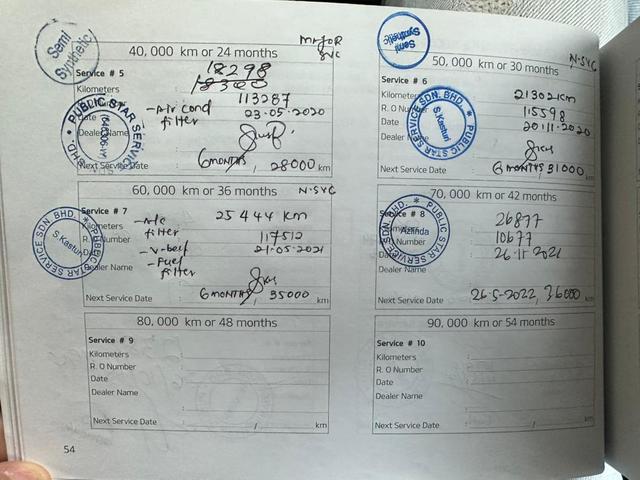 Semi
Synthetic
MAJOR
SVC
40,000 km or 24 months
Service # 5
18298
Kilometers
18300
R. O Number
113287
- Air cond
filter
Date
23.05.2020
Dealer Name
PUBLIC STAR SERVICE SDN. BHD.
Next Service Date
6 MONTHS, 28000 km
Semi
Synthetic
N-SVC
50,000 km or 30 months
Service # 6
Kilometers
21302 km
R. O Number
115598
Date
20.11.2020
Dealer Name
PUBLIC STAR SERVICE SDN. BHD.
S. Kasturi
Next Service Date
6 MONTHS 31000 km
60,000 km or 36 months
N-SVC
Service # 7
- A/C
filter
Kilometers
25444 km
R. O Number
117512
- V-belt
Date
21.05.2021
- Fuel
filter
Dealer Name
PUBLIC STAR SERVICE SDN. BHD.
S. Kasturi
Next Service Date
6 MONTHS, 35000 km
70,000 km or 42 months
Service # 8
Kilometers
26877
R. O Number
10677
Date
26.11.2021
Dealer Name
PUBLIC STAR SERVICE SDN. BHD.
Azlinda
Next Service Date
26-5-2022, 36000 km
80,000 km or 48 months
Service # 9
Kilometers :
R. O Number :
Date :
Dealer Name :
Next Service Date : / km
90,000 km or 54 months
Service # 10
Kilometers :
R. O Number :
Date :
Dealer Name :
Next Service Date : / km
54